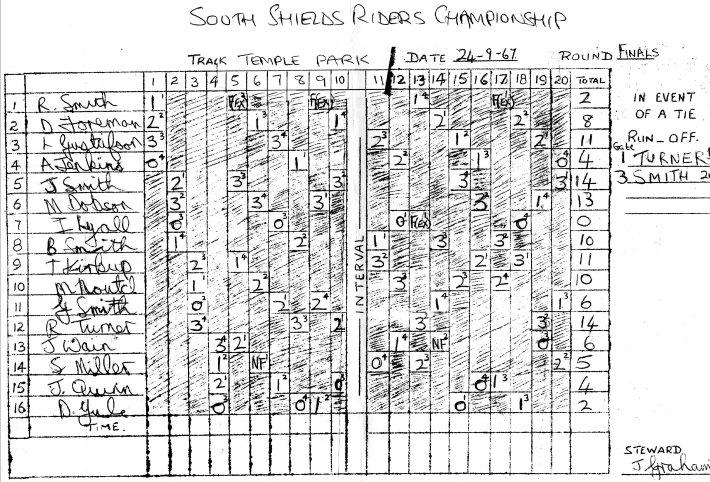 SOUTH SHIELDS RIDERS CHAMPIONSHIP
TRACK TEMPLE PARK DATE 24-9-67 ROUND FINALS
1 2 3 4 5 6 7 8 9 10 11 12 13 14 15 16 17 18 19 20 TOTAL
1 R. Smith 1¹ F(EX)³ F(EX) 1⁴ F(EX) 2
2 D Foreman 2² 1³ 1⁴ 2¹ 2² 8
3 L Gustafson 3³ 3⁴ 2³ 1² 2¹ 11
4 A Jenkins 0⁴ 1¹ 2² 1³ 0⁴ 4
5 J Smith 2¹ 3³ 3² 3⁴ 3¹ 14
6 M Dobson 3² 3⁴ 3¹ 3 1⁴ 13
7 I Lyall 0³ 0³ 0¹ F(EX) 0⁴ 0
8 B Smith 1⁴ 2² 1¹ 3³ 3² 10
9 T Kirkup 2³ 1⁴ 3² 2¹ 3¹ 11
10 M 1¹ 2² 3³ 2³ 2⁴ 10
11 Smith 0² 2¹ 2⁴ 1⁴ 1³ 6
12 R Turner 3⁴ 3³ 2 3² 3² 14
13 J Wain 3⁴ 2¹ 1⁴ NF² 0³ 6
14 S Miller 1² NF¹ 0⁴ 2³ 2² 5
15 J. Quinn 2¹ 1² 0³ 0⁴ 1³ 4
16 D. Yule 0³ 0⁴ 1² 0¹ 1³ 2
TIME.
INTERVAL
IN EVENT
OF A TIE
RUN-OFF.
Gate
1 TURNER
3 SMITH
STEWARD
J Graham